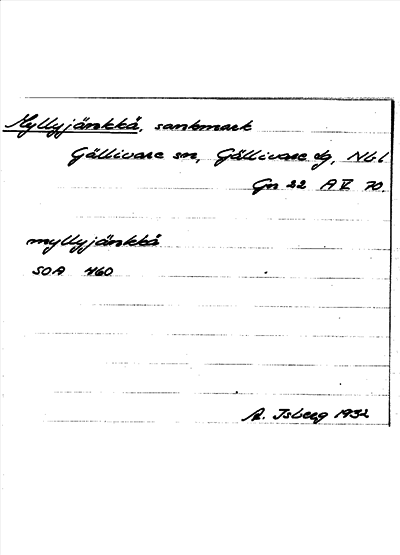 Myllyjänkkä, sankmark
Gällivare sn, Gällivare dg, Nbl
Gn 22 A V 70.
myllyjänkkä
SOA 460
A. Isberg 1932